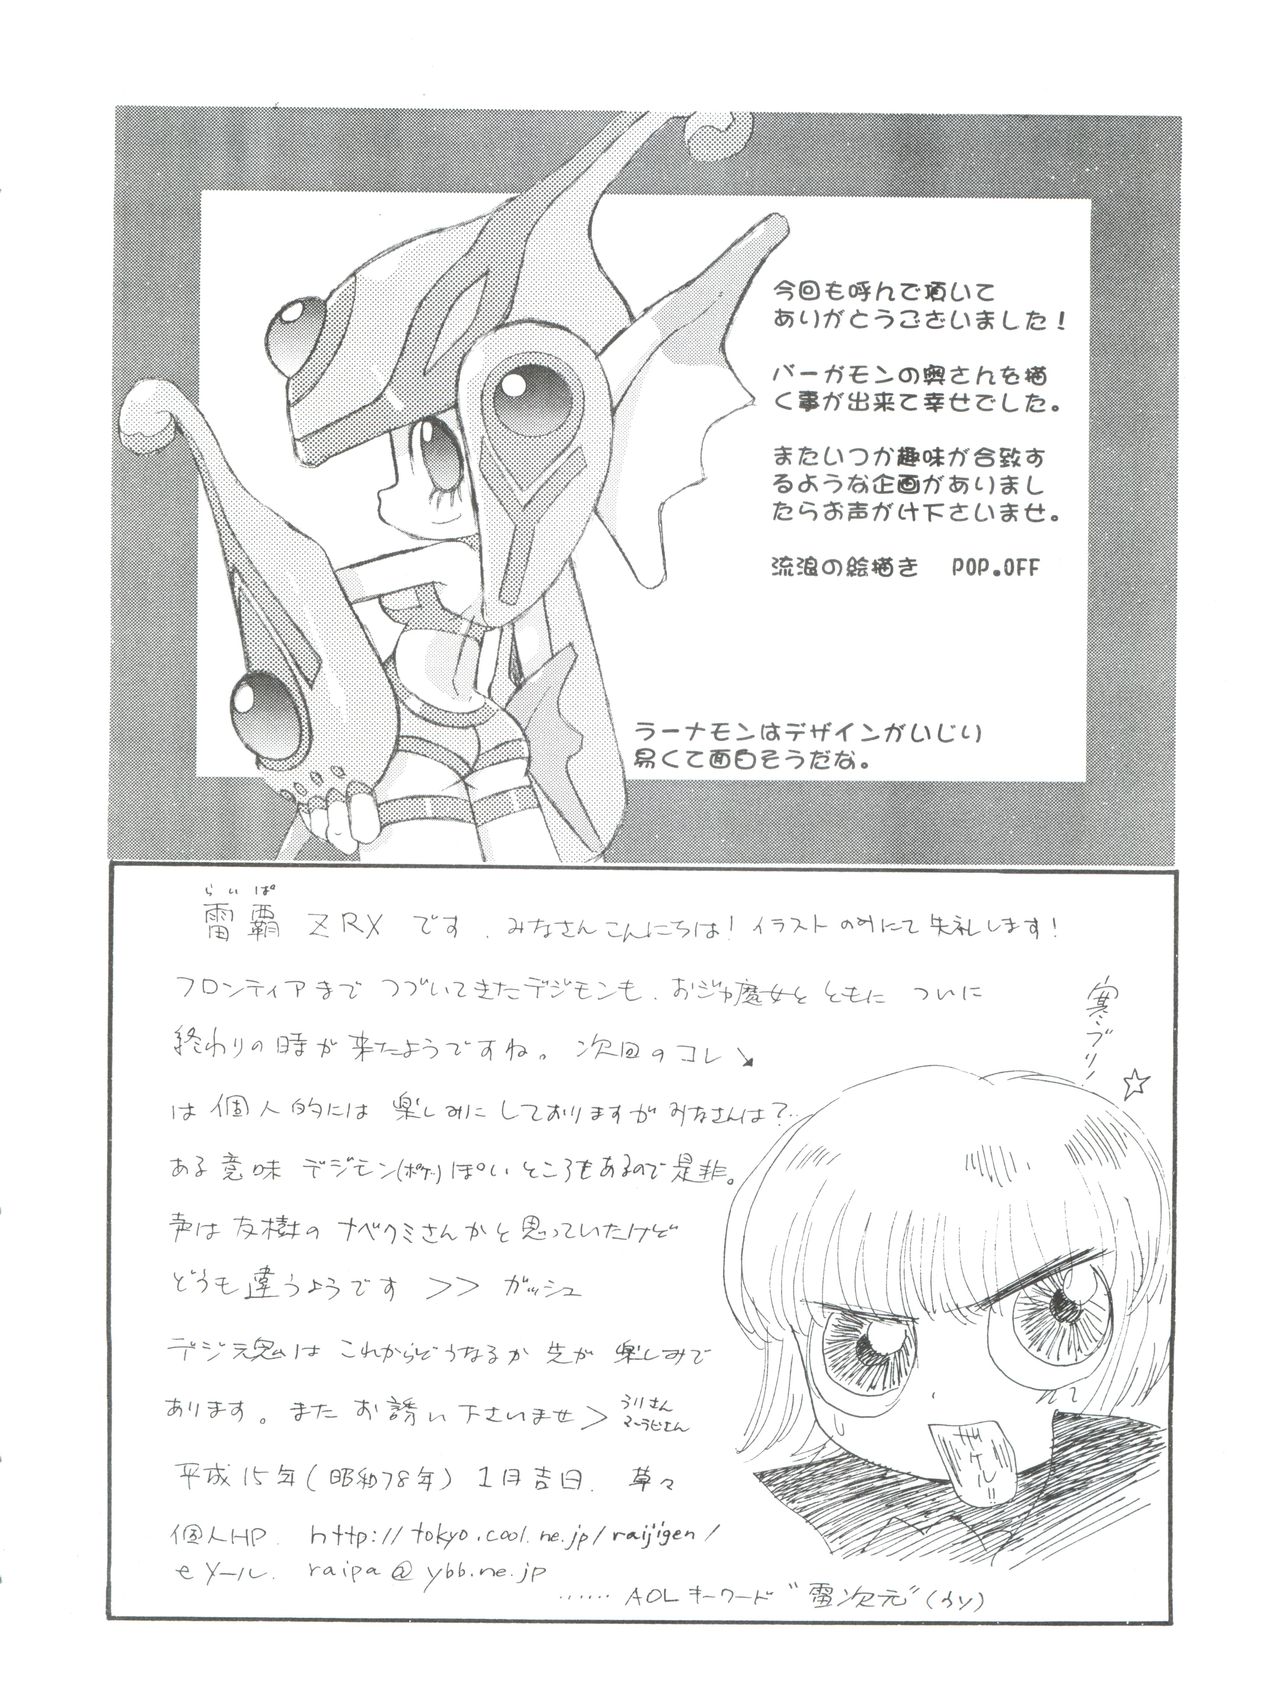 今回も呼んで頂いて
ありがとうございました!
バーガモンの奥さんを描
く事が出来て幸せでした。
またいつか趣味が合致す
るような企画がありまし
たらお声がけ下さいませ。
流浪の絵描き POP.OFF
ラーナモンはデザインがいじり
易くて面白そうだな。
らいぱ
雷覇 ZRX です. みなさんこんにちは! イラストのみにて失礼します!
フロンティアまで つづいてきたデジモンも、おジャ魔女と ともに ついに
終わりの時が来たようですね。次回のコレ↘
は個人的には 楽しみに しておりますが みなさんは?…
ある意味 デジモン(ポケ)ぽい ところもあるので是非。
声は友樹の ナベクミさんかと思っていたけど
どうも違うようです >> ガッシュ
デジ元魂は これからどうなるか 先が 楽しみで
あります。また お誘い下さいませ>
うりさん
マーラビさん
平成15年(昭和78年) 1月吉日. 草々
個人HP. http://tokyo.cool.ne.jp/raijigen/
eメール. raipa@ybb.ne.jp
…… AOLキーワード "雷次元" (うそ)
寒ブリ ☆
ザケル!!